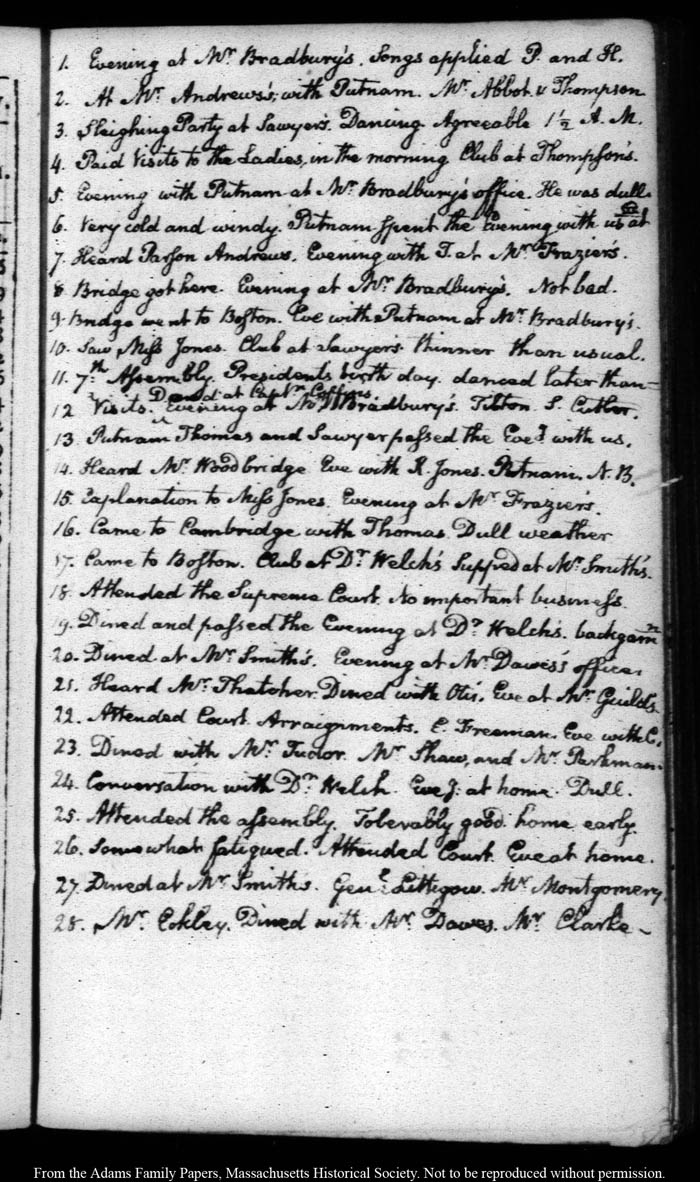 1. Evening at Mr. Bradbury's. Songs applied P. and H.
2. At Mr. Andrews's, with Putnam. Mr. Abbot & Thompson
3. Sleighing Party at Sawyer's. Dancing Agreeable 1 1/2 A. M.
4. Paid Visits to the Ladies, in the morning Club at Thompson's.
5. Evening with Putnam at Mr. Bradbury's office. He was dull.
6. Very cold and windy. Putnam spent the Evening with us at
7. Heard Parson Andrews. Evening with T. at Mr. Frazier's.
8 Bridge got here. Evening at Mr. Bradbury's. Not bad.
9. Bridge went to Boston. Eve with Putnam at Mr. Bradbury's.
10. Saw Miss Jones. Club at Sawyers. thinner than usual.
11. 7th. Assembly. Presidents birth day. danced later than—
Dined at Captn. Coffins.
12 Visits. Evening at Mr. Bradbury's. Tilton. S. Cutler.
13 Putnam Thomas and Sawyer passed the Eveg. with us.
14. Heard Mr. Woodbridge Eve with R. Jones. Putnam. N. B.
15. Explanation to Miss Jones. Evening at Mr. Frazier's.
16. Came to Cambridge with Thomas. Dull weather
17. Came to Boston. Club at Dr. Welch's Supped at Mr. Smith's.
18. Attended the Supreme Court. No important business.
19. Dined and passed the Evening at Dr. Welch's. backgamn
20. Dined at Mr. Smith's. Evening at Mr. Dawes's office.
21. Heard Mr. Thatcher. Dined with Otis. Eve at Mr. Guild's.
22. Attended Court. Arraignments. E. Freeman. Eve with C.
23. Dined with Mr. Tudor. Mr. Shaw, and Mr. Parkman.
24. Conversation with Dr. Welch. Eveg: at home. Dull.
25. Attended the assembly. Tolerably good. home early.
26. Somewhat fatigued. Attended Court. Eve at home.
27. Dined at Mr. Smiths. Genl. Mr. Montgomery
28. Mr. Eckley. Dined with Mr. Dawes. Mr. Clarke—
From the Adams Family Papers, Massachusetts Historical Society. Not to be reproduced without permission.